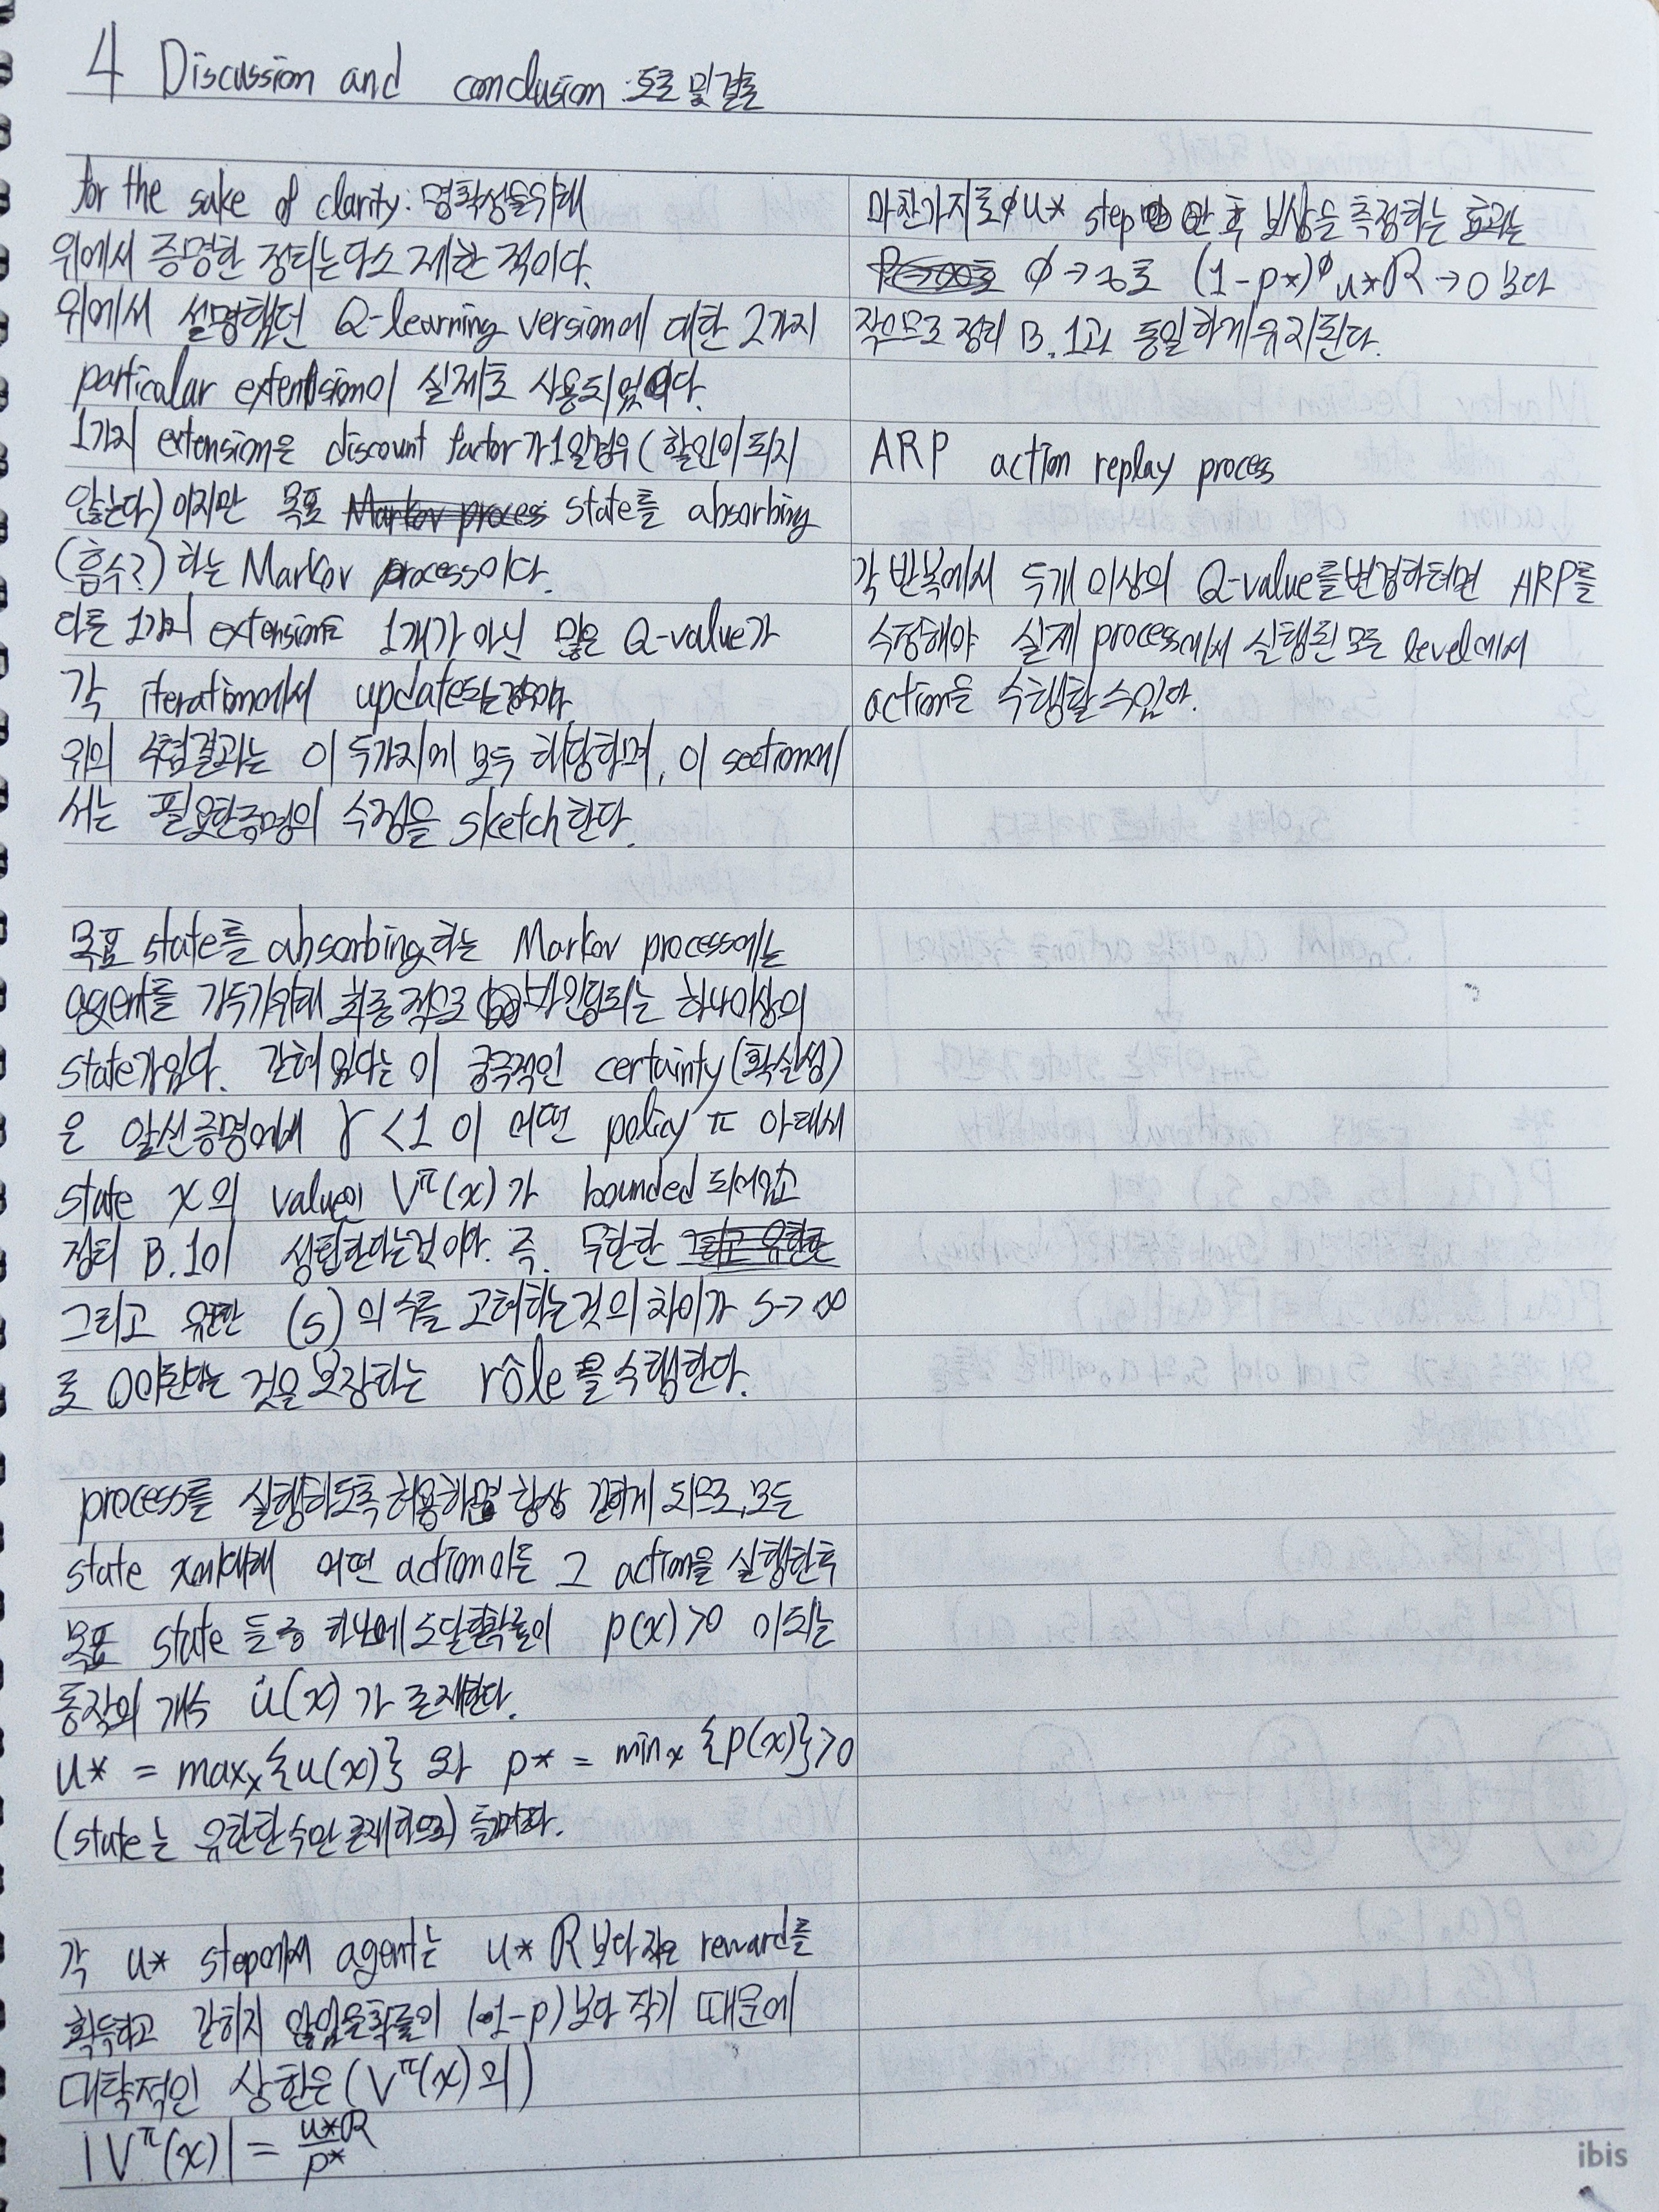 4 Discussion and conclusion : 토론 및 결론
for the sake of clarity : 명확성을위해
위에서 증명한 정리는다소 제한 적이다.
위에서 설명했던 Q-learning version에 대한 2가지
particular extension이 실제로 사용되었다.
1가지 extension은 discount factor가1일경우 (할인이 되지
않는다) 이지만 목표 state를 absorbing
(흡수?) 하는 Markov process이다.
다른 1가지 extension은 1개가 아닌 많은 Q-value가
각 iteration에서 update되는경우이다
위의 수렴결과는 이 두가지에 모두 해당하며, 이 section에
서는 필요한증명의 수정을 sketch한다.
목표 state를 absorbing하는 Markov process에는
agent를 가두기위해 최종적으로 바인딩되는 하나이상의
state가있다. 갇혀 있다는 이 궁극적인 certainty (확실성)
은 앞선증명에서 γ < 1 이 어떤 policy π 아래서
state x의 value인 Vπ(x)가 bounded 되어있고
정리 B.1이 성립한다는것이다. 즉. 무한한
그리고 유한한 (s)의 수를 고려하는것의 차이가 s → ∞
로 0이된다는 것을 보장하는 rôle을 수행한다.
process를 실행하도록 허용하면 항상 갇히게 되므로, 모든
state x에대해 어떤 action이든 그 action을 실행한후
목표 state 들중 하나에 도달할확률이 p(x)>0 이되는
동작의 개수 u(x) 가 존재한다.
u* = maxx {u(x)} 와 p* = minx {p(x)}>0
(state는 유한한 수만 존재하므로)
각 u* step에서 agent는 u* R보다 작은 reward를
획득하고 갇히지 않았을확률이 (1-p) 보다 작기 때문에
대략적인 상한은 (Vπ(x)의)
|Vπ(x)| = u*R / p*
마찬가지로 φu* step 만 후 보상을 측정하는 효과는
φ → ∞로 (1-p*)^φ u*R → 0 보다
작으므로 정리 B.1과 동일하게유지된다.
ARP action replay process
각 반복에서 두개 이상의 Q-value를변경하려면 ARP를
수정해야 실제 process에서 실행된 모든 level에서
action을 수행할 수있다.
ibis